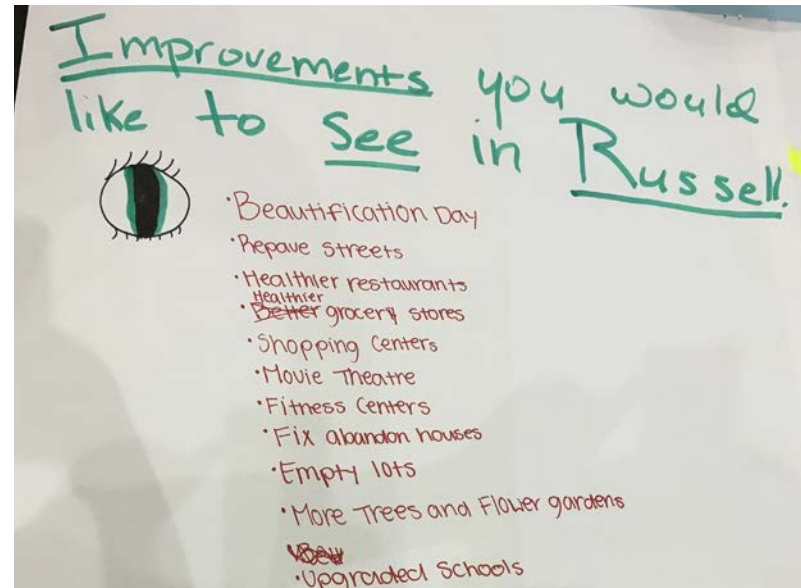 Improvements you would
like to See in Russell.
·Beautification Day
·Repave streets
·Healthier restaurants
Healthier
·Better grocery stores
·Shopping Centers
·Movie Theatre
·Fitness Centers
·Fix abandon houses
·Empty lots
·More Trees and Flower gardens
·Upgraded Schools